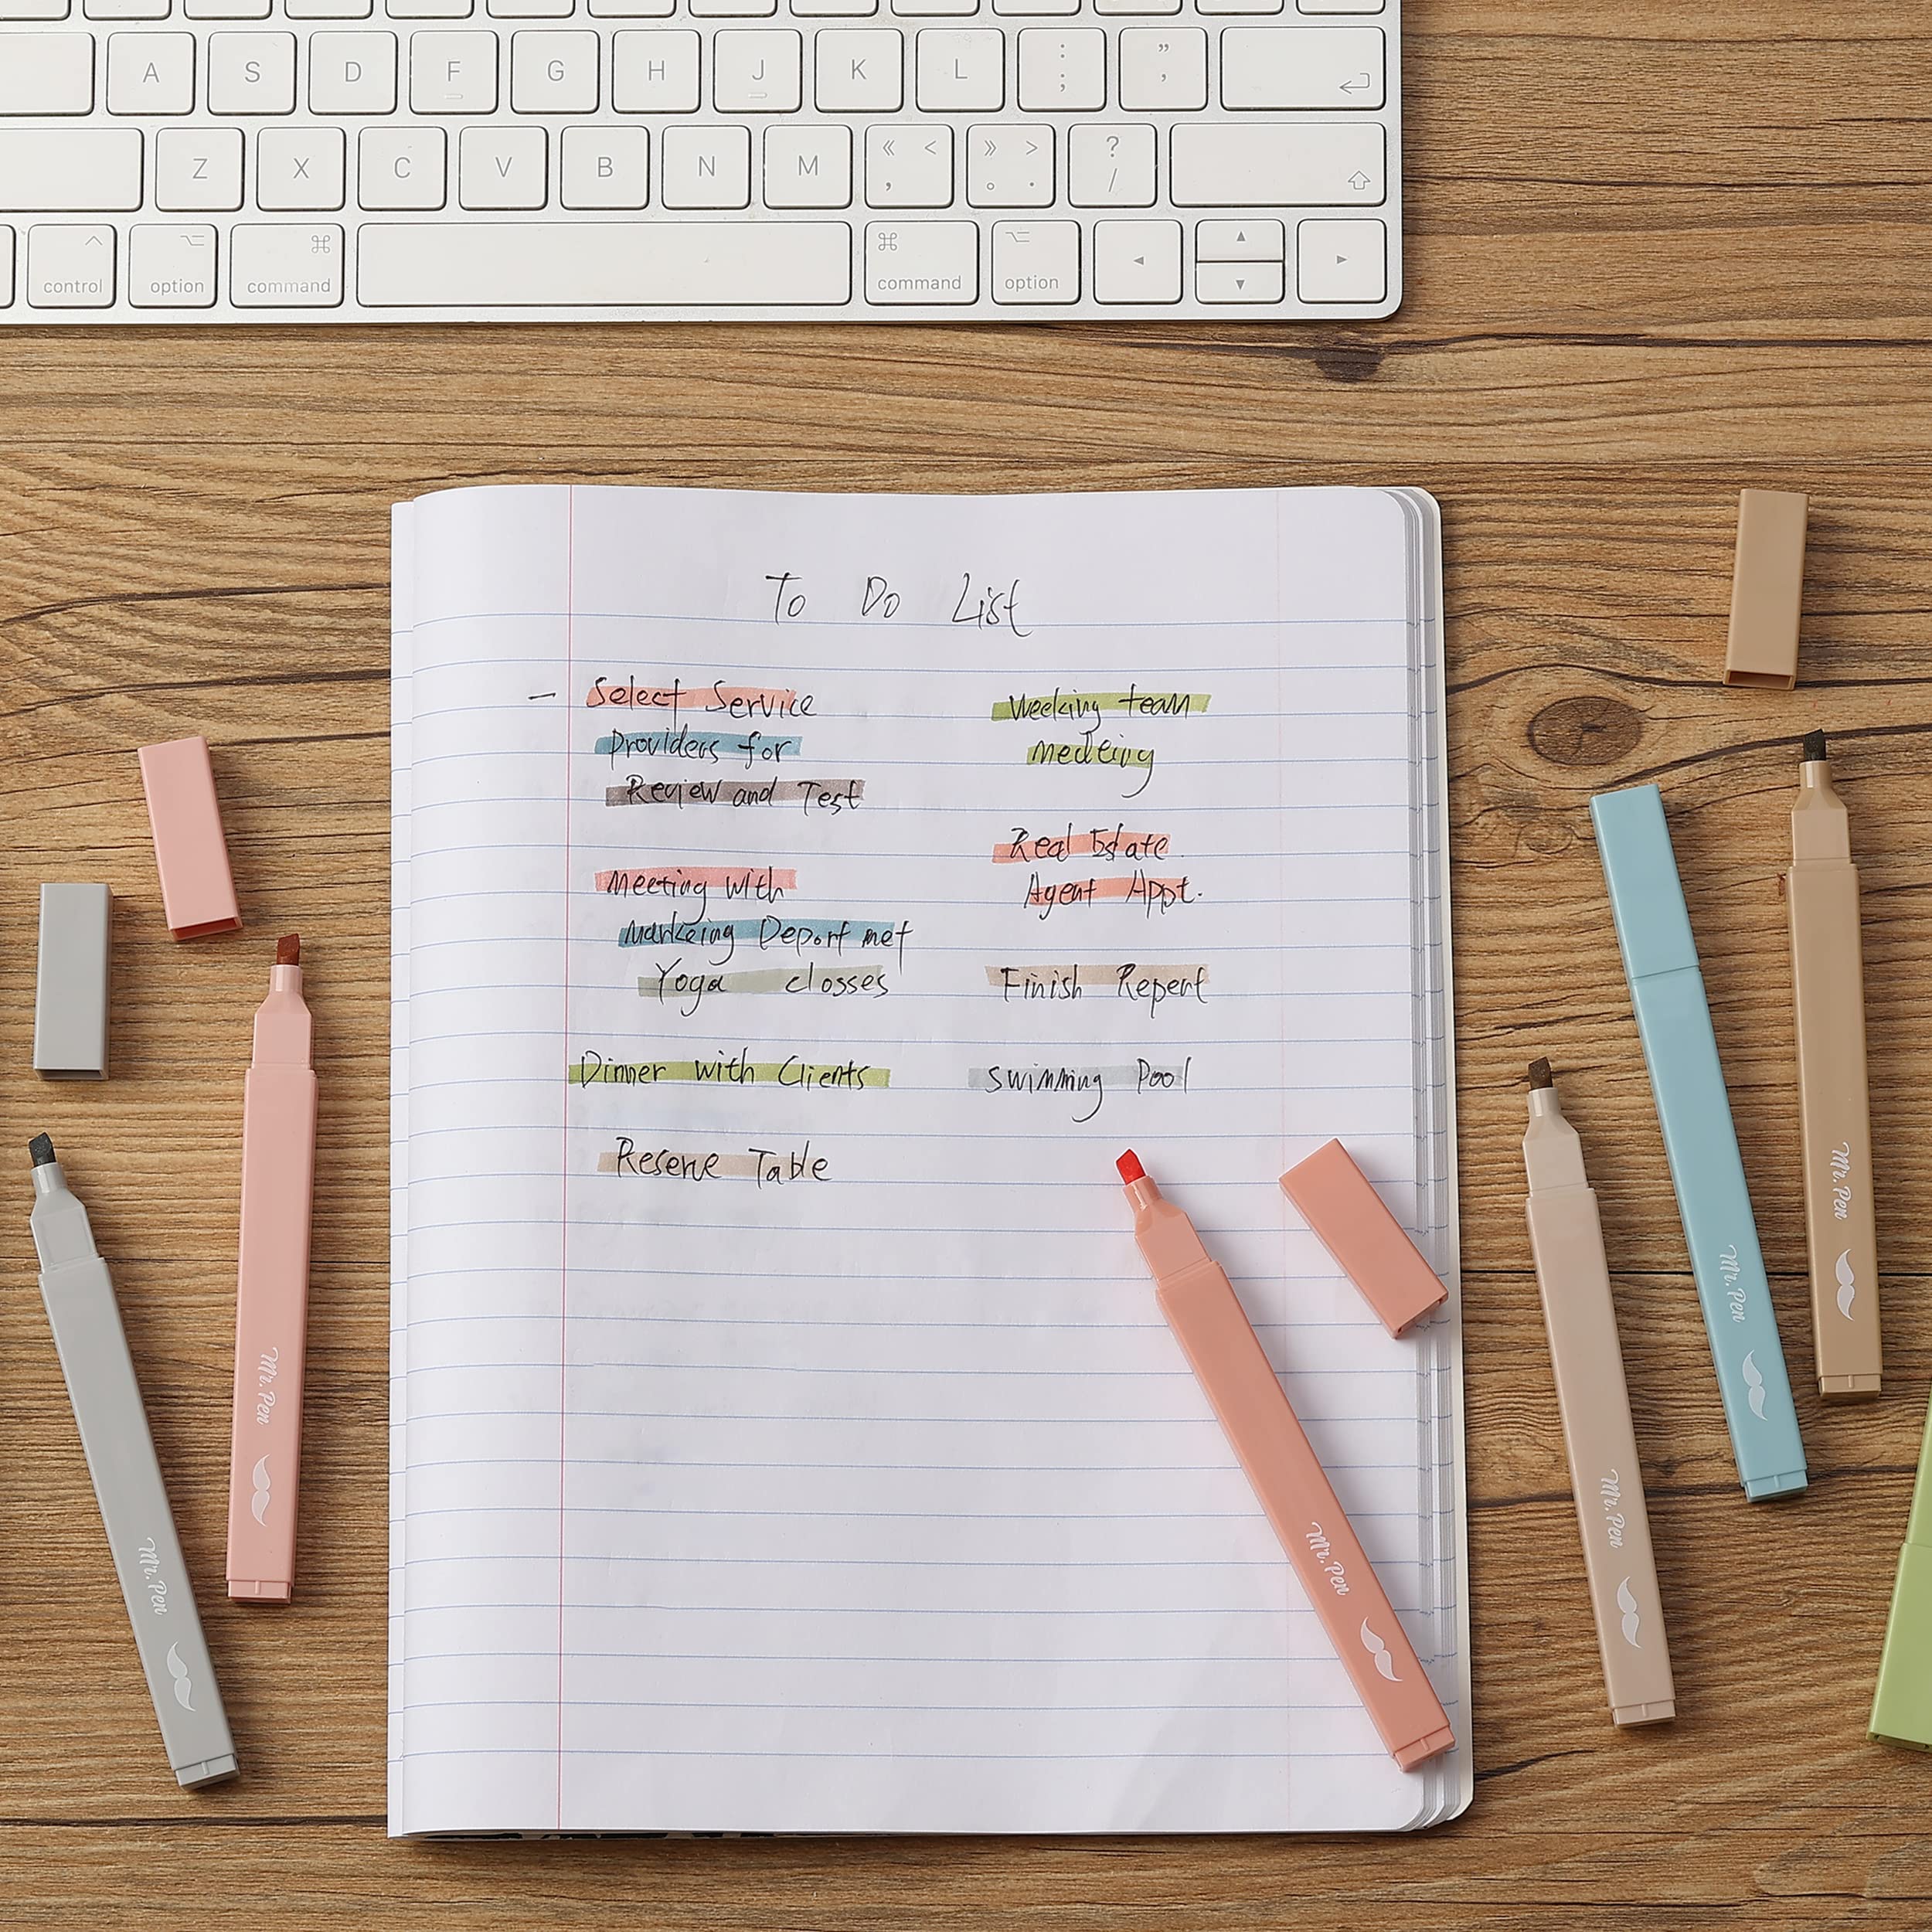 A S D F G H J K L : ; " ,
Z X C V B N M 《 < , 》 > 。 . ? /
control option command command option
To Do List
— Select Service
providers for
Review and Test
Meeting with
Markeing Deportmet
Yoga closses
Dinner with Clients
Reserve Table
Weeking team
medeing
Real Estate
Agent Appt.
Finish Repert
Swimming Pool
Mr. Pen
Mr. Pen
Mr. Pen
Mr. Pen
Mr. Pen
Mr. Pen